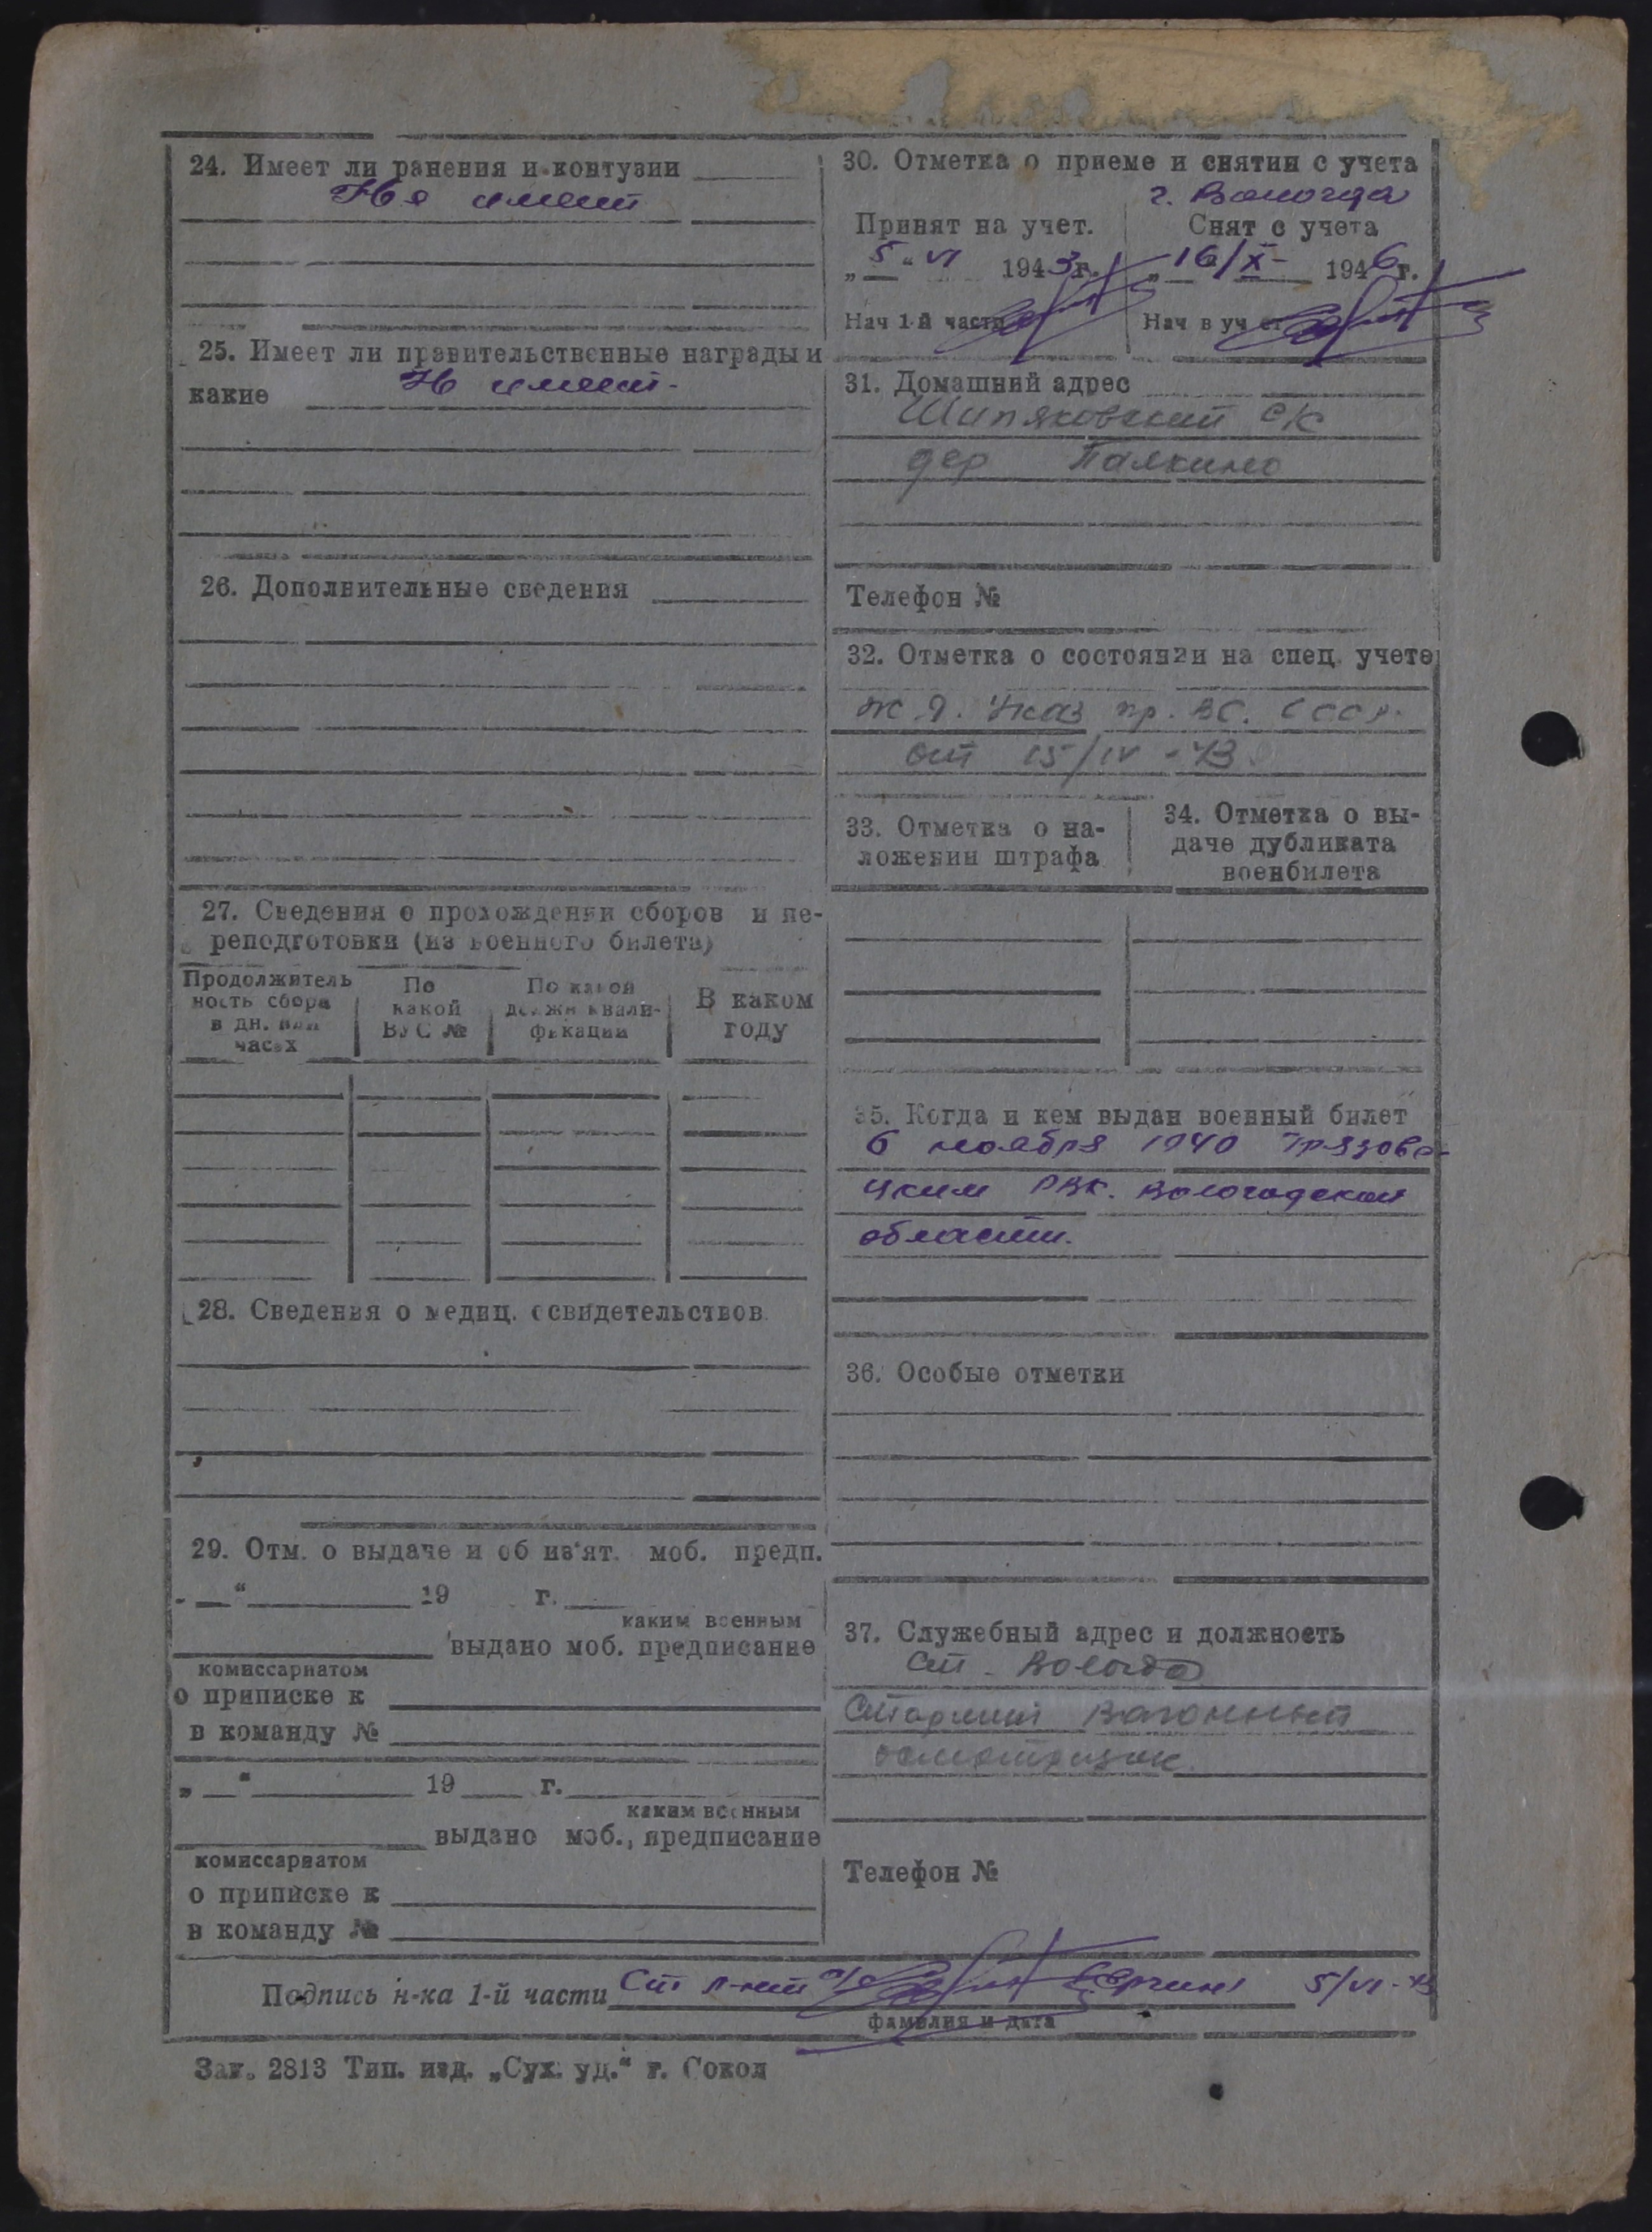 24. Имеет ли ранения и контузии
Не имеет
25. Имеет ли правительственные награды и
какие Н имеет.
26. Дополнительные сведения
27. Сведения о прохождении сборов и пе-
реподготовки (из военного билета)
Продолжитель
ность сбора
в дн. или
часах
По
какой
ВУС №
По какой
должн квали-
фикации
В каком
году
28. Сведения о медиц. освидетельствов.
29. Отм. о выдаче и об из'ят. моб. предп.
„ “ 19 г.
каким военным
выдано моб. предписание
комиссариатом
о приписке к
в команду №
„ “ 19 г.
каким военным
выдано моб., предписание
комиссариатом
о приписке к
в команду №
30. Отметка о приеме и снятии с учета
г. Вологда
Принят на учет.
„5“ VI 1943г.
Нач 1-й части
Снят с учета
„16/X- 1946г.
Нач в уч ст
31. Домашний адрес
Шипяковский с/с
дер Палкино
Телефон №
32. Отметка о состоянии на спец. учете
Ж.Д. Указ пр. ВС. СССР.
от 15/IV - 43
33. Отметка о на-
ложении штрафа
34. Отметка о вы-
даче дубликата
военбилета
35. Когда и кем выдан военный билет
6 ноября 1940 Грязове-
цким РВК. Вологодской
области.
36. Особые отметки
37. Служебный адрес и должность
ст. Вологда
Старший вагонный
осмотрщик.
Телефон №
Подпись н-ка 1-й части Ст л-нт а/с 5/VI-43
фамилия и дата
Зак. 2813 Тип. изд. „Сух. уд.“ г. Сокол